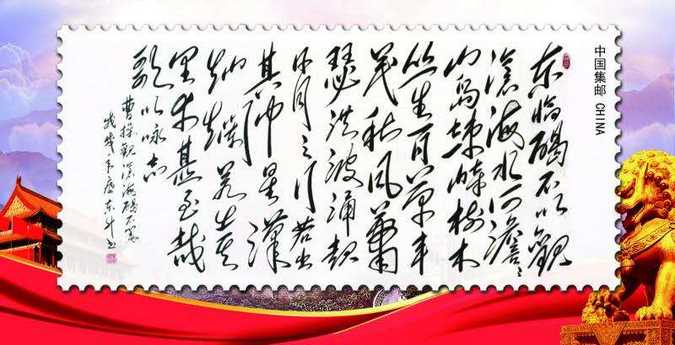 中国集邮 CHINA
东临碣石以觀
滄海水何澹澹
山岛竦峙樹木
丛生百草丰
茂秋风蕭
瑟洪波涌起
日月之行若出
其中星漢
灿爛若出其
里幸甚至哉
歌以咏志
曹操觀滄海碣石篇